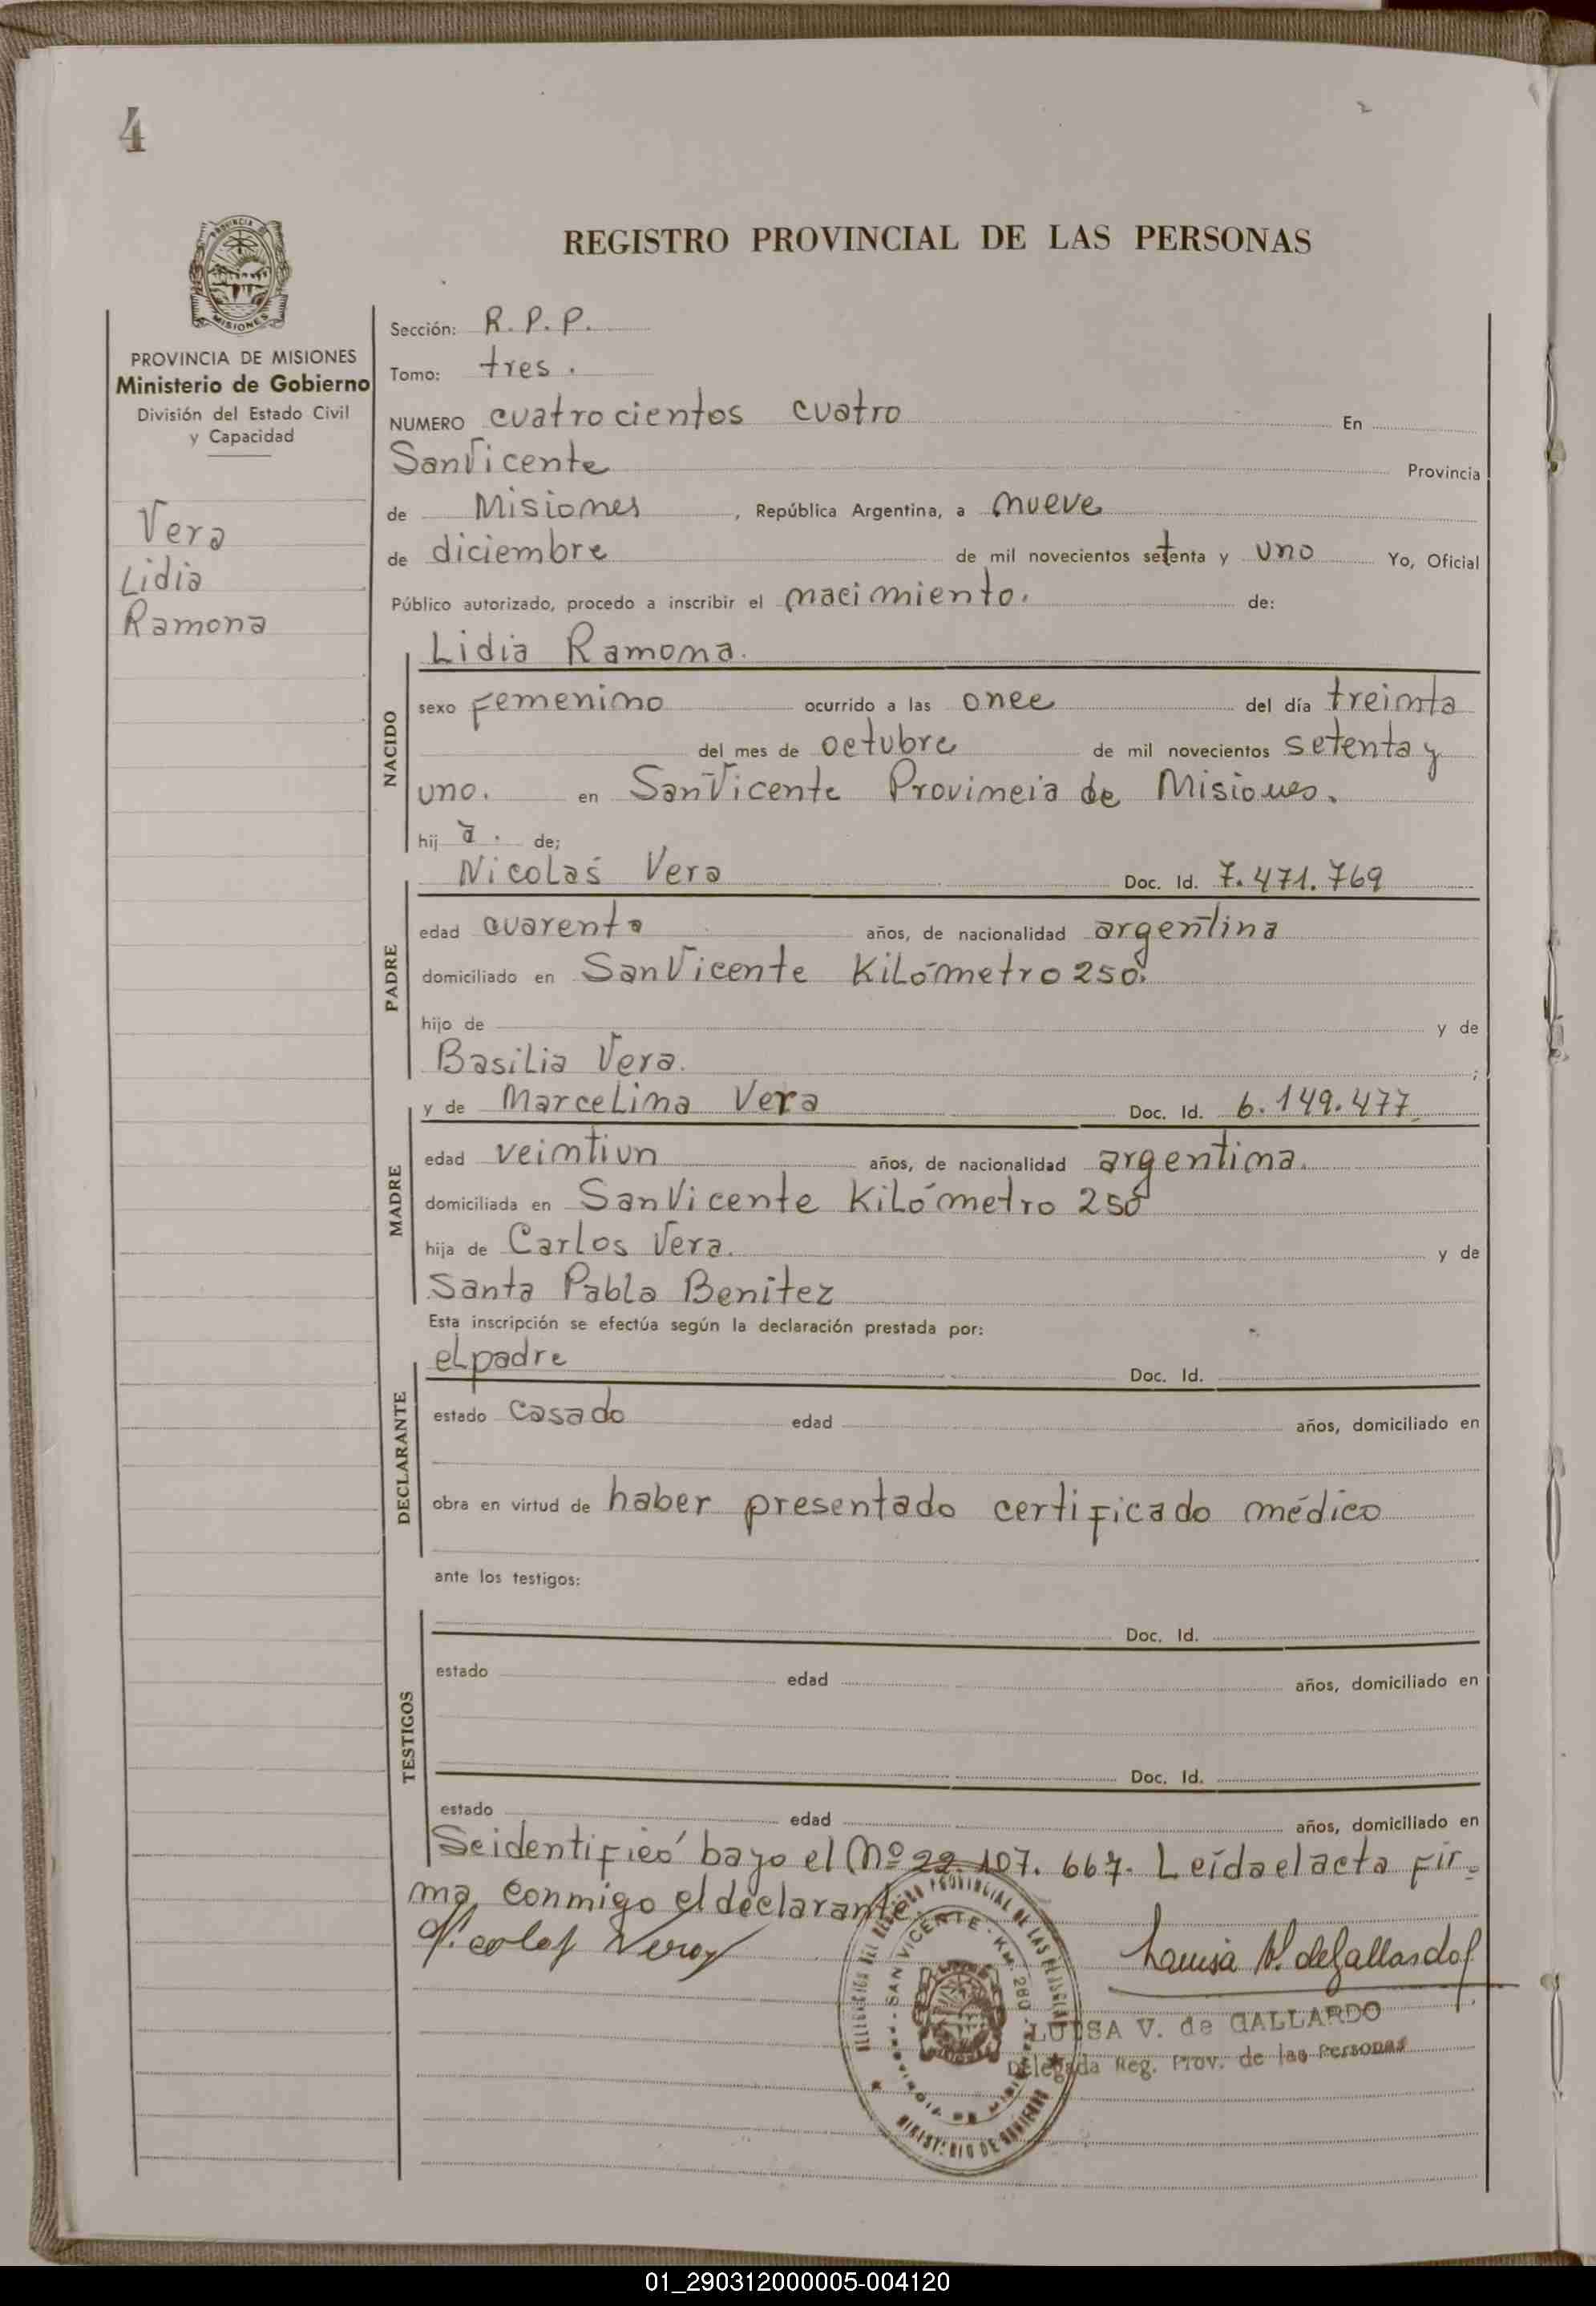 4
REGISTRO PROVINCIAL DE LAS PERSONAS
PROVINCIA DE MISIONES
Ministerio de Gobierno
División del Estado Civil
y Capacidad
Vera
Lidia
Ramona
Sección: R. P. P.
Tomo: tres.
NUMERO cuatrocientos cuatro En
San Vicente Provincia
de Misiones, República Argentina, a nueve
de diciembre de mil novecientos setenta y uno Yo, Oficial
Público autorizado, procedo a inscribir el nacimiento. de:
NACIDO
Lidia Ramona.
sexo femenino ocurrido a las once del día treinta
del mes de octubre de mil novecientos setenta y
uno. en San Vicente Provincia de Misiones.
hij a. de;
PADRE
Nicolas Vera Doc. Id. 7.471.769
edad cuarenta años, de nacionalidad argentina
domiciliado en San Vicente Kilómetro 250.
hijo de y de
Basilia Vera. ;
MADRE
y de Marcelina Vera Doc. Id. 6.149.477.
edad veintiun años, de nacionalidad argentina.
domiciliada en San Vicente Kilómetro 250
hija de Carlos Vera. y de
Santa Pabla Benitez
Esta inscripción se efectúa según la declaración prestada por:
DECLARANTE
el padre Doc. Id.
estado casado edad años, domiciliado en
obra en virtud de haber presentado certificado médico
ante los testigos:
TESTIGOS
Doc. Id.
estado edad años, domiciliado en
Doc. Id.
estado edad años, domiciliado en
Se identificó bajo el Nº 22.107.667. Leída el acta fir=
ma conmigo el declarante.
Nicolas Vera
Louisa V. de Gallardo
SAN VICENTE - KM. 280
MINISTERIO DE GOBIERNO
LUISA V. de GALLARDO
Delegada Reg. Prov. de las Personas
01_290312000005-004120